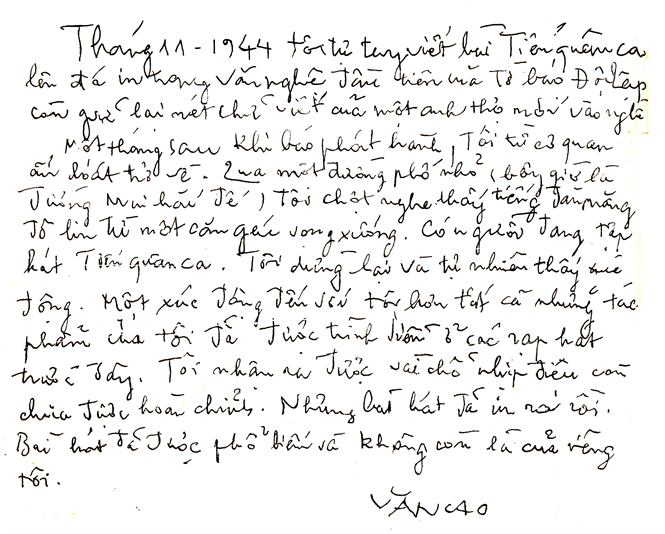 Tháng 11 - 1944 tôi tự tay viết bài Tiến quân ca
lên đá in trong văn nghệ đầu tiên của tờ báo Độc Lập
còn giữ lại nét chữ viết của một anh thợ mới vào nghề
Một tháng sau khi báo phát hành, Tôi từ cơ quan
ấn loát trở về. Qua một đường phố nhỏ (bây giờ là
đường Mai hắc đế) tôi chợt nghe thấy tiếng đàn măng
đô lin từ một căn gác vọng xuống. Có người đang tập
hát Tiến quân ca. Tôi dừng lại và tự nhiên thấy xúc
động. Một xúc động đến với tôi hơn tất cả những tác
phẩm của tôi đã được trình diễn ở các rạp hát
trước đây. Tôi nhận ra được vài chỗ nhịp điệu còn
chưa được hoàn chỉnh. Nhưng bài hát đã in ra rồi.
Bài hát đã được phổ biến và không còn là của riêng
tôi.
VĂN CAO